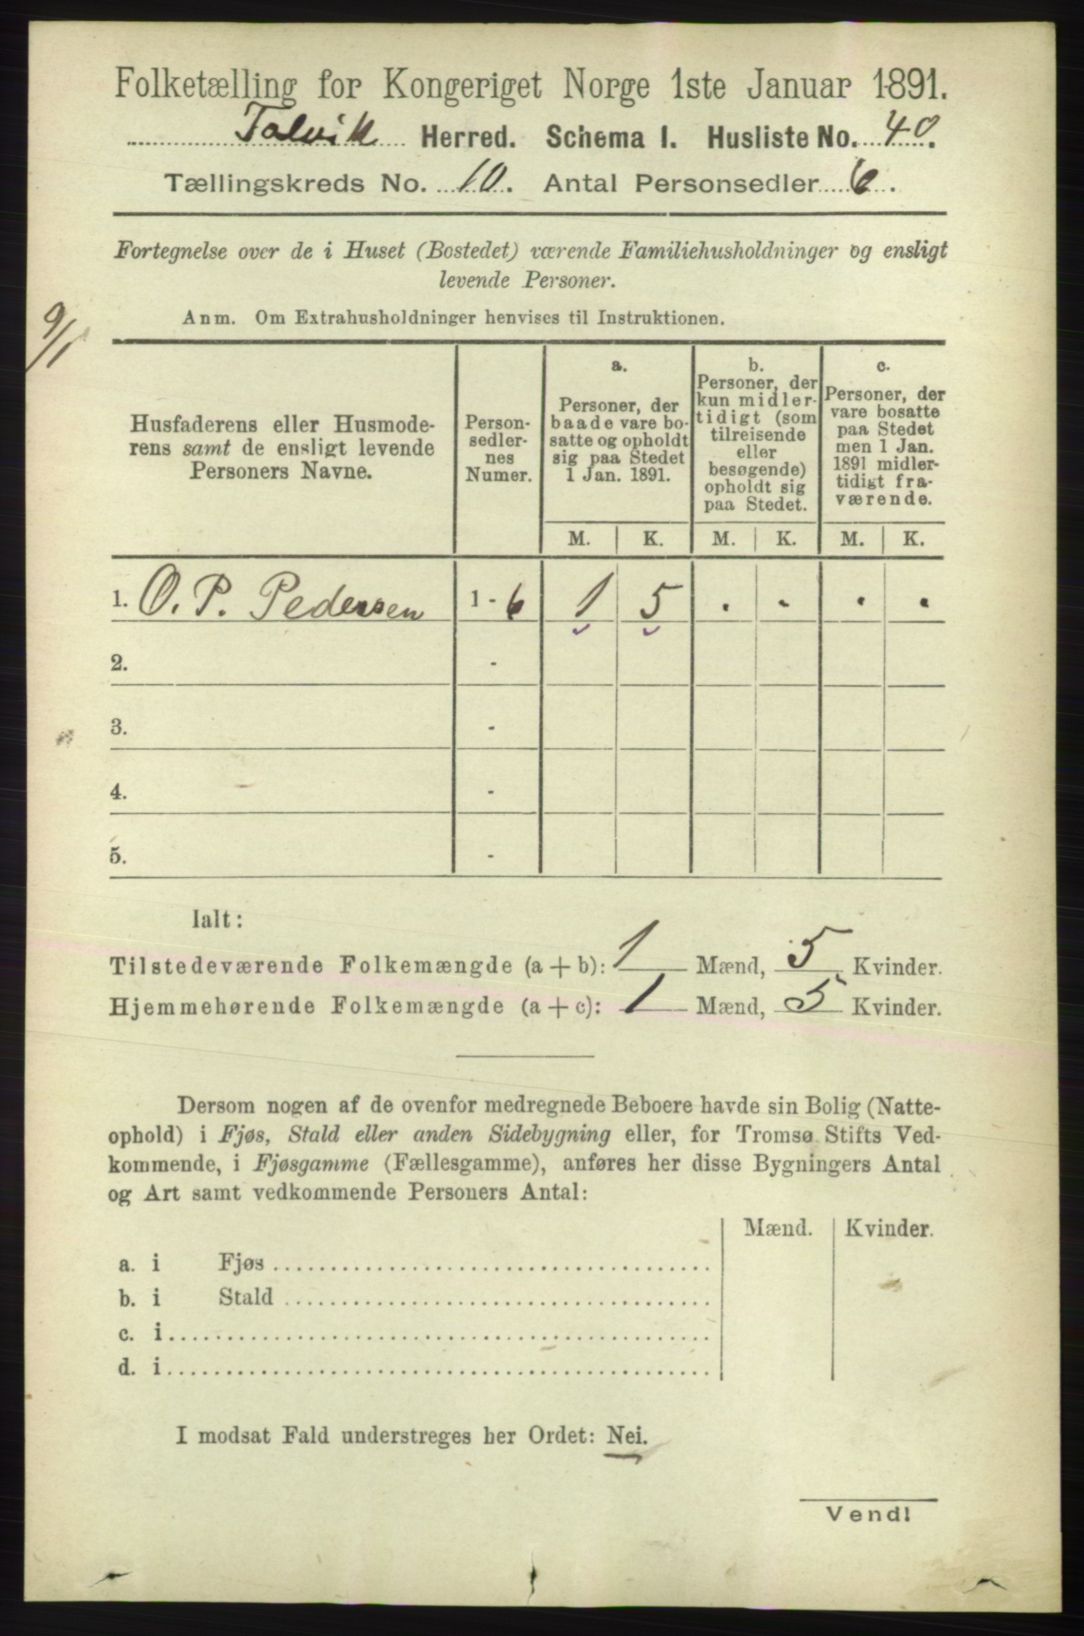 Folketælling for Kongeriget Norge 1ste Januar 1891.
Talvik Herred. Schema I. Husliste No. 40.
Tællingskreds No. 10. Antal Personsedler 6.
Fortegnelse over de i Huset (Bostedet) værende Familiehusholdninger og ensligt
levende Personer.
Anm. Om Extrahusholdninger henvises til Instruktionen.
9/1
Husfaderens eller Husmode-
rens samt de ensligt levende
Personers Navne.
Person-
sedler-
nes
Numer.
a.
Personer, der
baade vare bo-
satte og opholdt
sig paa Stedet
1 Jan. 1891.
b.
Personer, der
kun midler-
tidigt (som
tilreisende
eller
besøgende)
opholdt sig
paa Stedet.
c.
Personer, der
vare bosatte
paa Stedet
men 1 Jan.
1891 midler-
tidigt fra-
værende.
M. K. M. K. M. K.
1. O. P. Pedersen 1 - 6 1 5 . . . .
2. -
3. -
4. -
5. -
Ialt:
Tilstedeværende Folkemængde (a + b): 1 Mænd, 5 Kvinder.
Hjemmehørende Folkemængde (a + c): 1 Mænd, 5 Kvinder.
Dersom nogen af de ovenfor medregnede Beboere havde sin Bolig (Natte-
ophold) i Fjøs, Stald eller anden Sidebygning eller, for Tromsø Stifts Ved-
kommende, i Fjøsgamme (Fællesgamme), anføres her disse Bygningers Antal
og Art samt vedkommende Personers Antal:
Mænd. Kvinder.
a. i Fjøs
b. i Stald
c. i
d. i
I modsat Fald understreges her Ordet: Nei.
Vend!